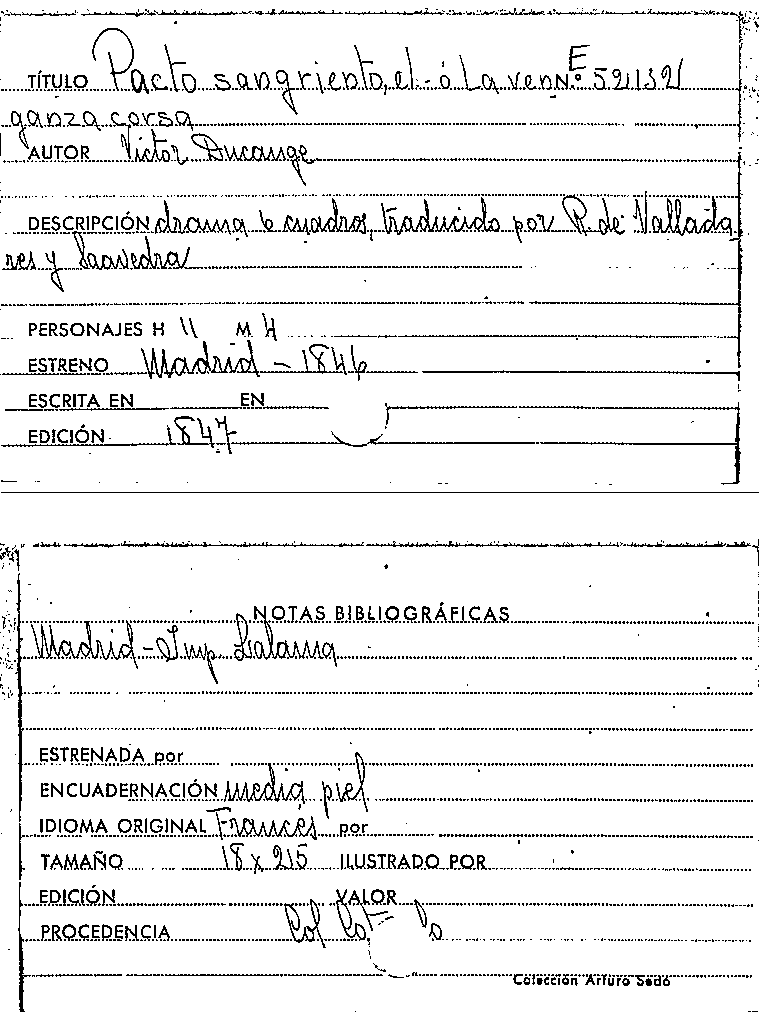 TÍTULO Pacto sangriento, el - ó La ven N.º E 52132
ganza corsa
AUTOR Victor Ducange
DESCRIPCIÓN drama 6 cuadros, traducido por R. de Vallada
res y Saavedra
PERSONAJES H 11 M 4
ESTRENO Madrid - 1846
ESCRITA EN EN
EDICIÓN 1847
NOTAS BIBLIOGRÁFICAS
Madrid - Imp. Lalama
ESTRENADA por
ENCUADERNACIÓN media piel
IDIOMA ORIGINAL Frances por
TAMAÑO 18 x 215 ILUSTRADO POR
EDICIÓN VALOR
PROCEDENCIA Col
Colección Arturo Sedó